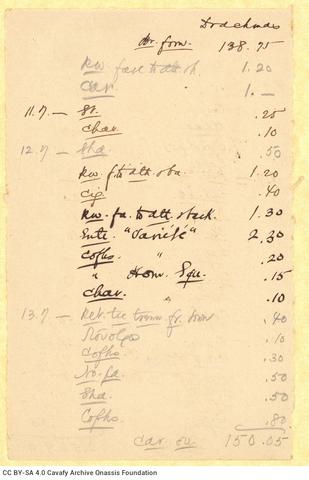 Drachmas
br. forw. 138.75
Rw. fare to Ath. 1.20
Car. 1.—
11.7 — St. .25
Char. .10
12.7 — Sha. .50
Rw. f. to Ath. 1.20
Cig. .40
Rw. fa. to Ath. & back. 1.30
Ente. "Variété" 2.30
Coffhs. .20
" Hom. Squ. .15
Char. " .10
13.7 — Ret. tic .40
.10
Coffhs. .30
No. pa. .50
Sha. .50
Coffhs. .80
car. ov. 150.05
CC BY-SA 4.0 Cavafy Archive Onassis Foundation